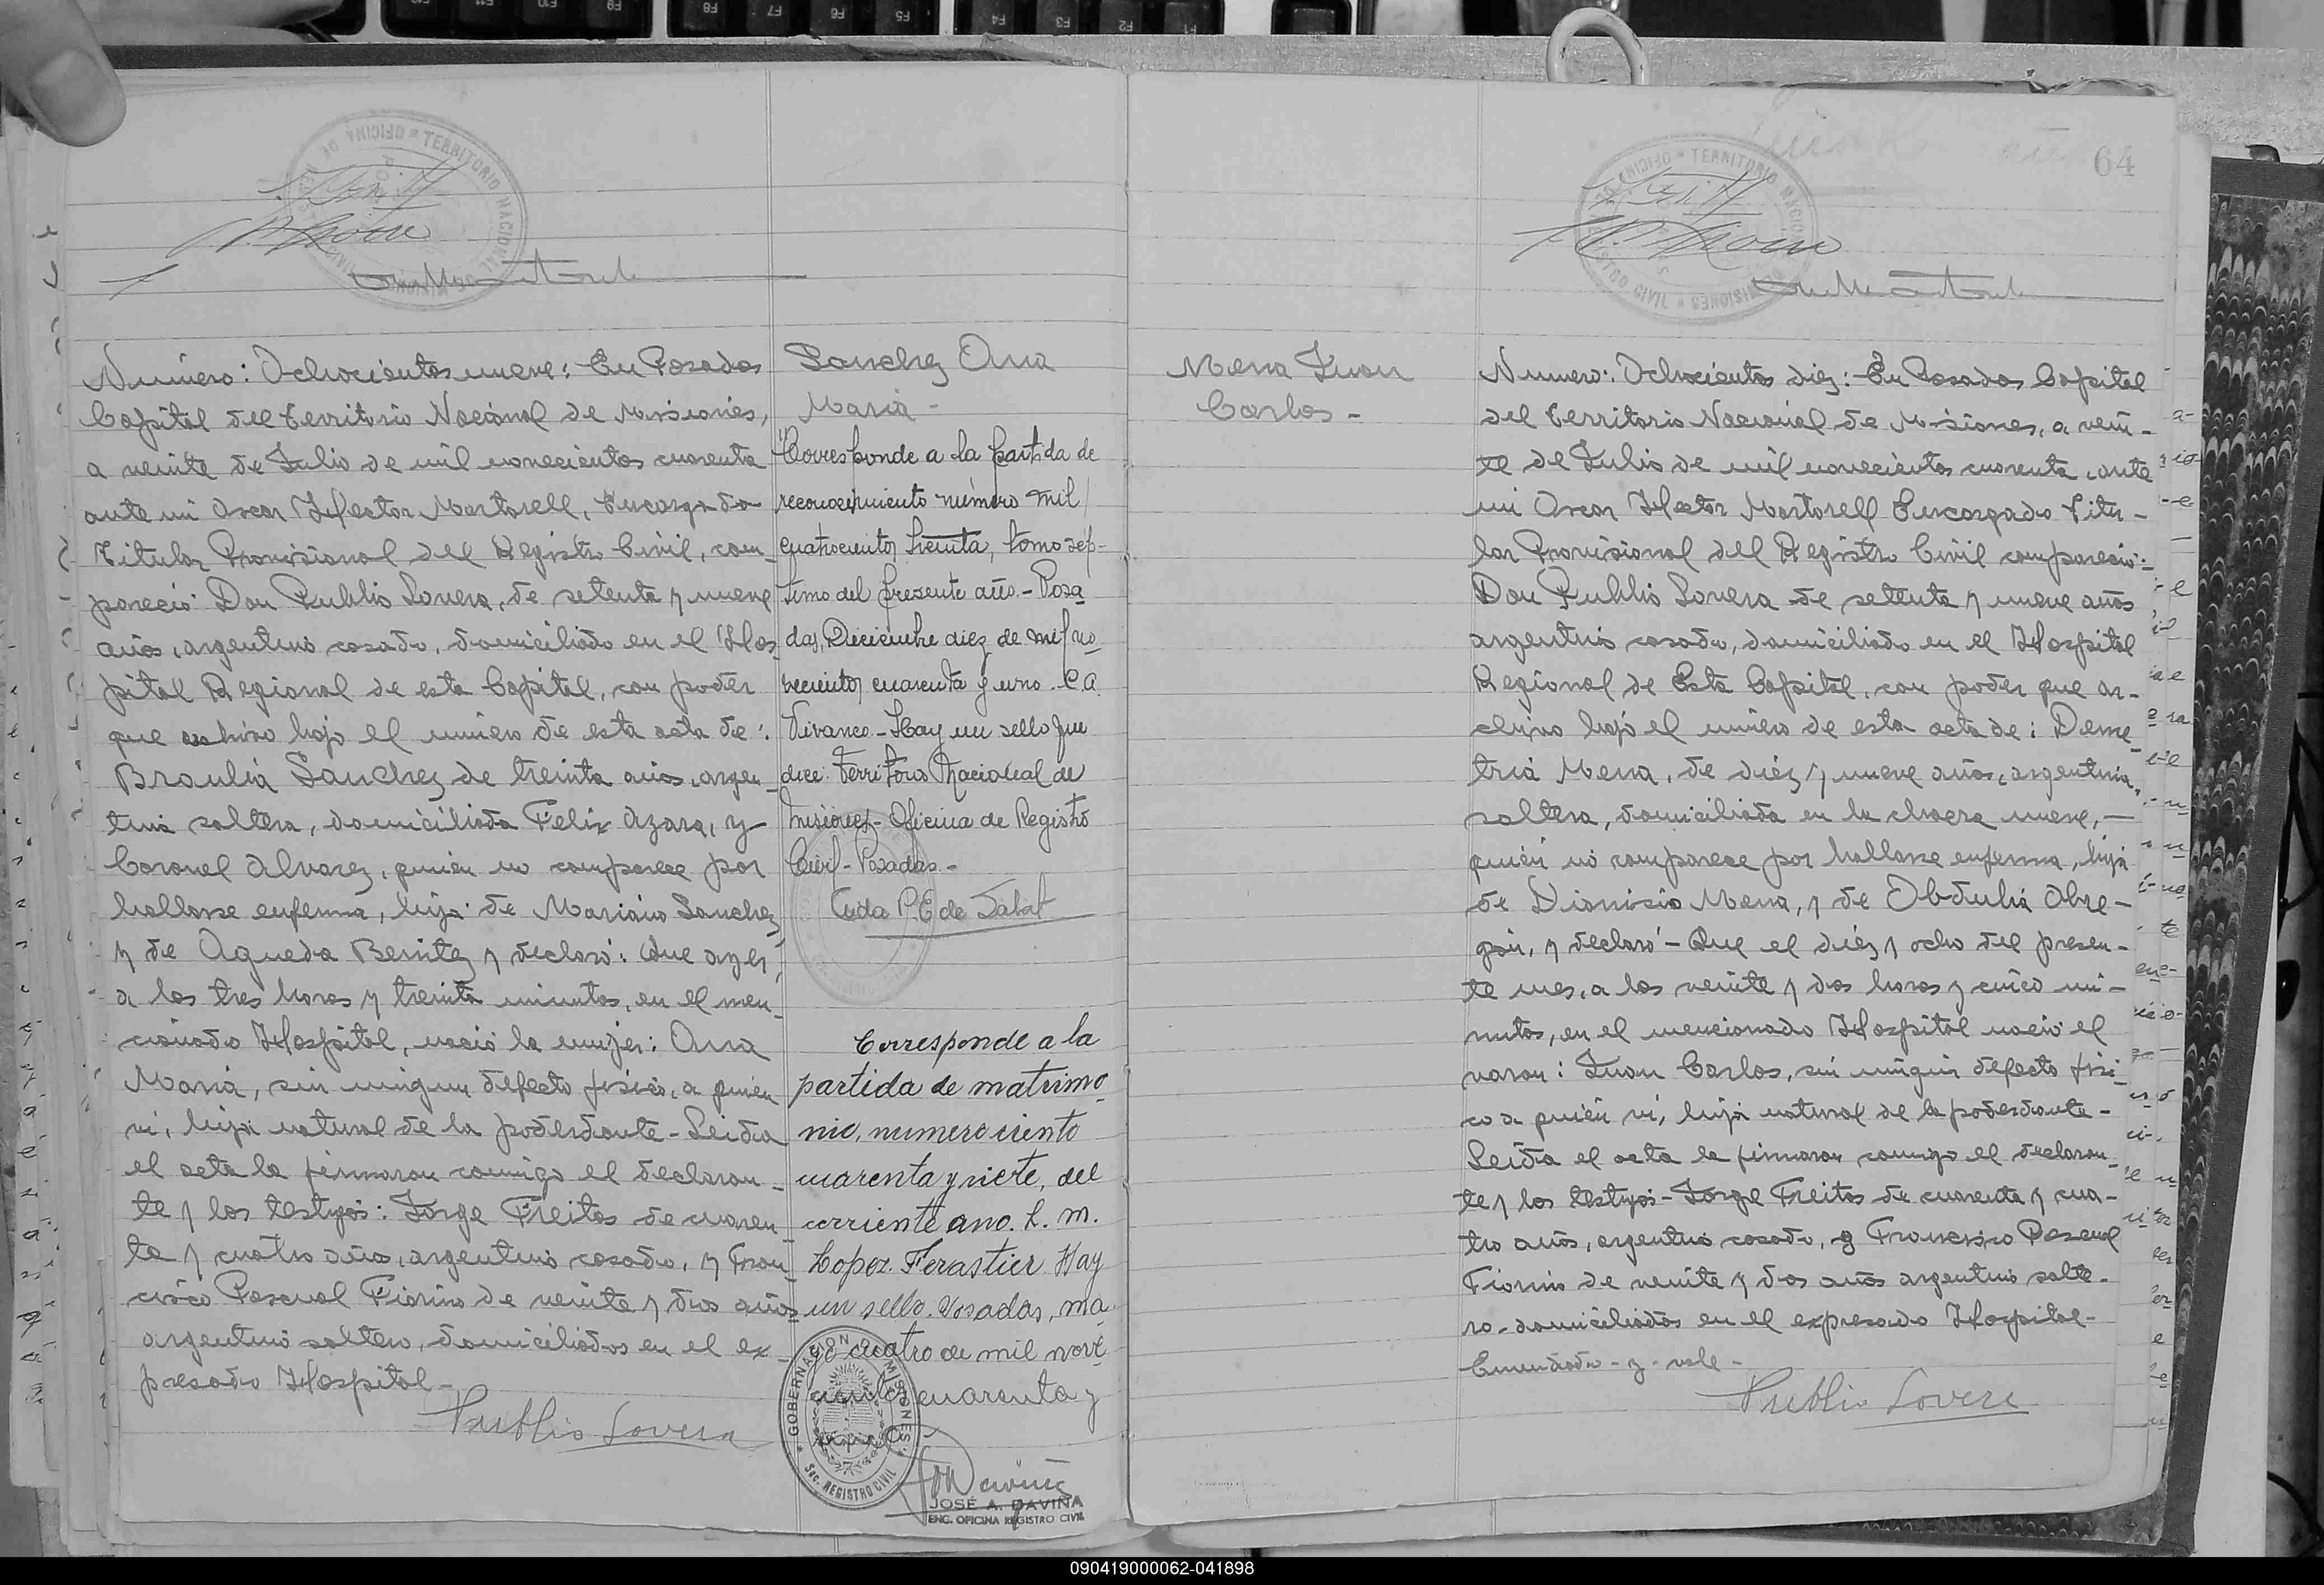 Número: Ochocientos nueve: En Posadas
Capital del Territorio Nacional de Misiones,
a veinte de Julio de mil novecientos cuarenta
ante mi Oscar Hector Martorell, Encargado
Titular Provisional del Registro Civil, com-
pareció: Don Publio Lovera, de setenta y nueve
años, argentino casado, domiciliado en el Hos-
pital Regional de esta Capital, con poder
que archivo bajo el número de esta acta de:
Braulia Sanchez de treinta años, argen-
tina soltera, domiciliada Felix Azara, y
Coronel Alvarez, quien no comparece por
hallarse enferma, hija de Mariano Sanchez,
y de Agueda Benitez y declaró: Que ayer,
a las tres horas y treinta minutos, en el men-
cionado Hospital, nació la mujer: Ana
Maria, sin ningun defecto fisico, a quien
vi, hija natural de la poderdante - Leida
el acta la firmaron conmigo el declaran-
te y los testigos: Jorge Freitas de cuaren-
ta y cuatro años, argentino casado, y Fran-
cisco Pascual Fiorino de veinte y dos años
argentino soltero, domiciliados en el ex-
presado Hospital -
Publio Lovera
Sanchez Ana
Maria -
Corresponde a la partida de
reconocimiento número mil
cuatrocientos treinta, tomo sép-
timo del presente año. - Posa
das, Diciembre diez de mil no
vecientos cuarenta y uno. C. A.
Vivanco - Hay un sello que
dice: Territorio Nacional de
Misiones - Oficina de Registro
Civil - Posadas. -
Corresponde a la
partida de matrimo
nio, numero ciento
cuarenta y siete, del
corriente ano. L. m.
Lopez. Ferastier Hay
un sello. Posadas, ma
yo cuatro de mil nove
cientos cuarenta y
GOBERNACION DE MISIONES
Sec. REGISTRO CIVIL
JOSÉ A. DAVIÑA
ENC. OFICINA REGISTRO CIVIL
64
Mena Juan
Carlos -
Numero: Ochocientos diez: En Posadas, Capital
del Territorio Nacional de Misiones, a vein-
te de Julio de mil novecientos cuarenta, ante
mi Oscar Hector Martorell Encargado Titu-
lar Provisional del Registro Civil compareció:-
Don Publio Lovera de setenta y nueve años
argentino casado, domiciliado en el Hospital
Regional de Esta Capital, con poder que ar-
chivo bajo el número de esta acta de: Deme-
tria Mena, de diéz y nueve años, argentina,
soltera, domiciliada en la chacra nueve, -
quién no comparece por hallarse enferma, hija
de Dionisio Mena, y de Obdulia Obre-
gón, y declaró - Que el diéz y ocho del presen-
te mes, a las veinte y dos horas y cinco mi-
nutos, en el mencionado Hospital nació el
varon: Juan Carlos, sin ningún defecto fisi-
co a quién vi, hijo natural de la poderdante -
Leida el acta la firmaron conmigo el declaran-
te y los testigos - Jorge Freitas de cuarenta y cua-
tro años, argentino casado, y Francisco Pascual
Fiorino de veinte y dos años argentino solte-
ro - domiciliados en el expresado Hospital -
Enmendado - y - vale -
Publio Lovera
090419000062-041898